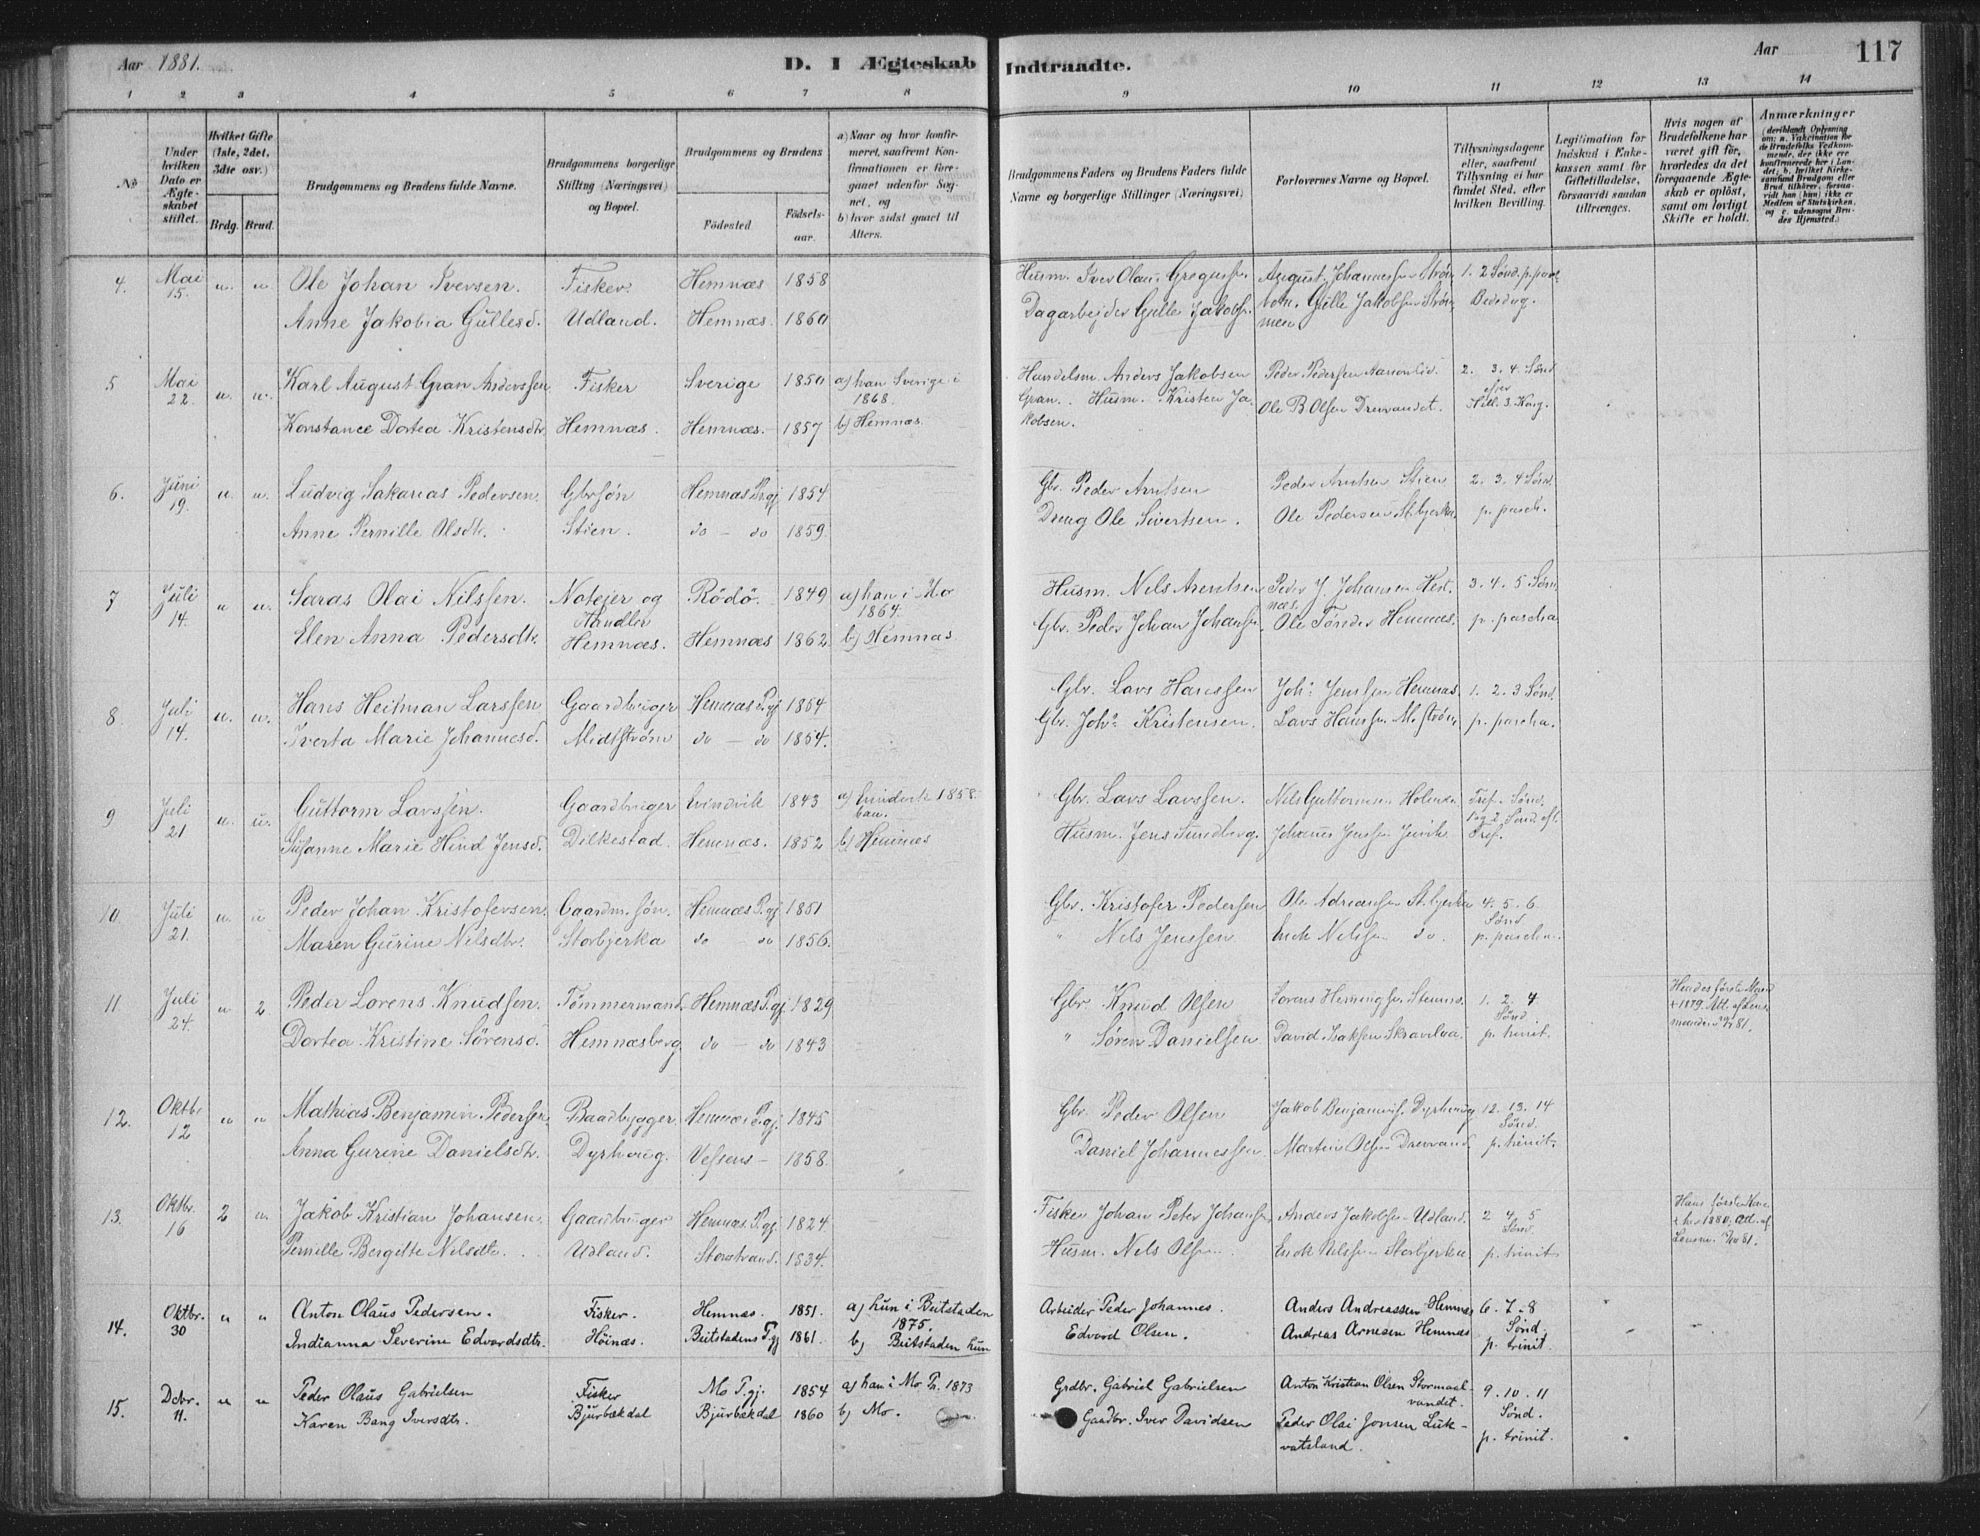 Aar 1881.
D. I Ægteskab
Indtraadte.
Aar
117
1 2 3 4 5 6 7 8 9 10 11 12 13 14
No
Under hvilken Dato er Ægteskabet stiftet.
Hvilket Gifte (1ste, 2det, 3die osv.)
Brdg. Brud.
Brudgommens og Brudens fulde Navne.
Brudgommens borgerlige Stilling (Næringsvei) og Bopæl.
Brudgommens og Brudens
Fødested
Fødsels-aar.
a) Naar og hvor konfirmeret, saafremt Konfirmationen er foregaaet udenfor Sognet, og
b) hvor sidst gaaet til Alters.
Brudgommens Faders og Brudens Faders fulde Navne og borgerlige Stillinger (Næringsvei)
Forlovernes Navne og Bopæl.
Tillysningsdagene eller, saafremt Tillysning ei har fundet Sted, efter hvilken Bevilling.
Legitimation for Indskud i Enkekassen samt for Giftetilladelse, forsaavidt saadan tiltrænges.
Hvis nogen af Brudefolkene har været gift før, hvorledes da det foregaaende Ægteskab er opløst, samt om lovligt Skifte er holdt.
Anmærkninger
4. Mai 15. u. u. Ole Johan Iversen. Fisker Hemnæs 1858 Husm. Iver Olaus Gregusen August Johannessen 1. 2 Sønd. p. pas
Anne Jakobia Gullesd. Udland. Hemnæs. 1860 Dagarbejder Gulle Jakobs. Gulle Jakobsen Strømmen Bededag.
5 Mai 22. u. u. Karl August Gran Anderssen Fisker Sverige 1850 a) han Sverige i 1868. Handelsm. Anders Jakobsen Gran. Peder Pedersen 2. 3. 4. Sønd
Konstance Dortea Kristensdtr Hemnæs. Hemnæs. 1857 b) Hemnæs. Husm. Kristen Jakobsen. Ole B. Olsen Drevvandet.
6. Juni 19. u. u. Ludvig Sakarias Pedersen. Gbrsøn Hemnæs Prgj 1854 Gbr. Peder Arntsen Peder Arntsen Stien 2. 3. 4 Sønd.
Anne Pernille Olsdtr. Stien. do - do 1859. Dreng Ole Sivertsen. Ole Pedersen St.bjerka p. pasch.
7 Juli 14. u u. Saras Olai Nilssen. Notejer og Handler Rødø. 1849 a) han i Mo 1864. Husm. Nels Arentsen Peder J. Johansen Hestnæs. 3. 4. 5 Sønn
Elen Anna Pedersdtr. Hemnæs. Hemnæs 1862 b) Hemnæs. Gbr. Peder Johan Johansen. Ole Tønder Hemnæs. p. pascha
8. Juli 14. u. u. Hans Heitman Larssen Gaardbruger Hemnæs P.gj 1854 Gbr. Lars Hanssen Johs. Jenssen Hemnæs. 1. 2. 3 Sønd.
Iverta Marie Johannesd. Midtstrøm do - do 1854. Gbr. Johs. Kristensen. Lars Hanssen M.strøm p. pascha.
9 Juli 21 u. u. Guttorm Larssen. Gaardbruger Evindvik 1843 a) Evindvik 1858. han. Gbr. Lars Larssen. Nils Guttormsen Tref. Sønd.
Susanne Marie Hind Jensd. Dilkestad. Hemnæs. 1852 b) Hemnæs Husm. Jens Sundberg. Johannes Jenssen 1 og 2 Sønd. eft. Tref.
10. Juli 21. u. u Peder Johan Kristofersen. Gaardm.søn. Hemnæs P.gj 1851 Gbr. Kristofer Pedersen Ole Adrianssen St.bjerka 4. 5. 6 Sønd
Maren Gurine Nilsdtr. Storbjerka do do 1856. " Nels Jenssen Erik Nilssen do. p. pascha.
11. Juli 24. u 2 Peder Lorens Knudsen. Tømmermand. Hemnæs P.gj. 1829 Gbr. Knud Olsen Sørens Hemingsen 1. 2. 4 Sønd Hendes første Mand + 1879.
Dortea Kristine Sørensd. Hemnæsberg do - do 1843 " Søren Danielsen David Isaksen Skravlaa. p. trinit.
12. Oktbr. 12 u u Mathias Benjamin Pedersen. Baadbygger Hemnæs P.gj. 1845 Gbr Peder Olsen Jakob Benjamins. Dyrhaug 12. 13. 14 Sønd.
Anna Gurine Danielsdtr. Dyrhaug. Vefsens - 1858. Daniel Johannessen Martin Olsen Drevvand. p. trinit.
13. Oktbr. 16 2 u. Jakob Kristian Johansen. Gaardbruger Hemnæs P.gj 1824 Fisker Johan Peter Johansen Anders Jakobsen Udland. 2 4. 5 Sønd. Hans første Kone
Pernille Bergitte Nilsdtr. Udland. Storstrand. 1834. Husm. Nels Olsen Erik Nilssen Storbjerka p. trinit.
14. Oktbr. 30 u u Anton Olaus Pedersen. Fisker. Hemnæs. 1851. a) hun i Beitstaden 1875. Arbeider Peder Johannes. Anders Andreassen Hemnæs 6. 7. 8 Sønd.
Indianna Severine Edvardsdtr. Høinæs. Beitstadens P.gj 1861. b) Beitstaden hun Edvard Olsen. Andreas Arnesen Hemnæs p. trinit.
15. Dcbr. 11. u u Peder Olaus Gabrielsen Fisker Mo P.gj. 1854 a) han i Mo Pr. 1873 Grdbr. Gabriel Gabrielsen Anton Kristian Olsen Stormaalvandet. 9. 10. 11 Sønd.
Karen Bang Iversdtr. Bjurbækdal Bjurbækdal 1860 b) Mo. Gaardbr. Iver Davidsen Peder Olai Jonsen Lukvatsland. p. trinit.